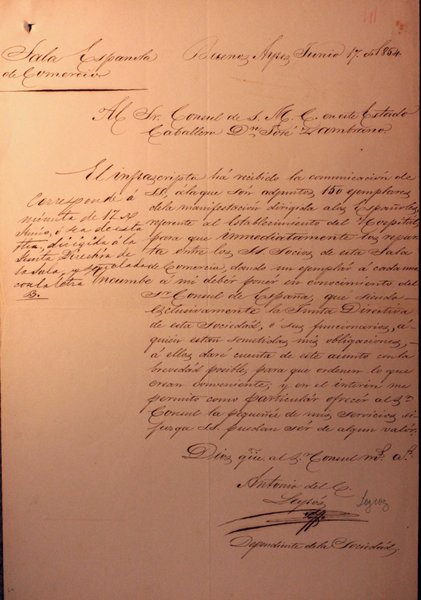 Sala Española
de Comercio
Buenos Ayres Junio 17. de 1854
Al Sr. Consul de S. M. C. en este Estado
Caballero Dn. José Zambrano
El infrascripto há recibido la comunicacion de
á la que son adjuntos 150 ejemplares
de la manifestacion dirigida a los Españoles,
referente al establecimiento del Hospital
para que inmediatamente los repar
ta entre los SS. Socios de esta Sala
de Comercio, dando un ejemplar á cada uno
Incumbe a mi deber poner en conocimiento del
Sr. Consul de España, que siendo
Exclusivamente la Junta Directiva
de esta Sociedad, é sus funcionarios, a
quien estan sometidas mis obligaciones,
a ellas daré cuenta de este asunto con la
brevedad posible, para que ordenen lo que
crean conveniente; y en el interin me
permito como particular ofrecer al Sr.
Consul la pequeñez de mis servicios, si
juzga SS. puedan sér de algun valor.
Corresponde á
minuta de 17 de
Junio,
dirigida á la
Junta Directiva de
la Sala, y
con la letra
B.
Dios gûe al Sr. Consul ms. as.
Antonio del C.
Dependiente de la Sociedad.